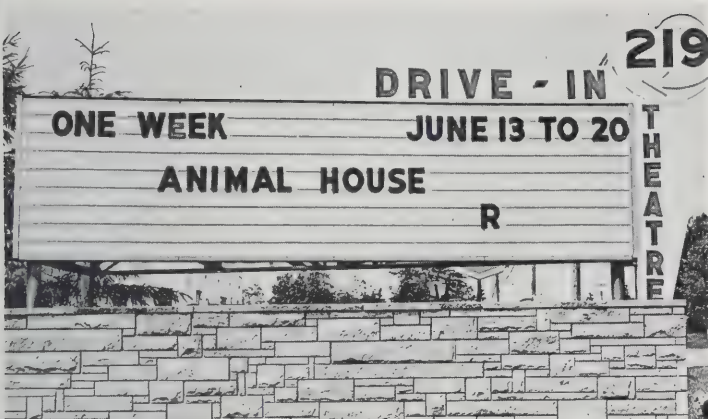 219
DRIVE - IN
THEATRE
ONE WEEK JUNE 13 TO 20
ANIMAL HOUSE
R